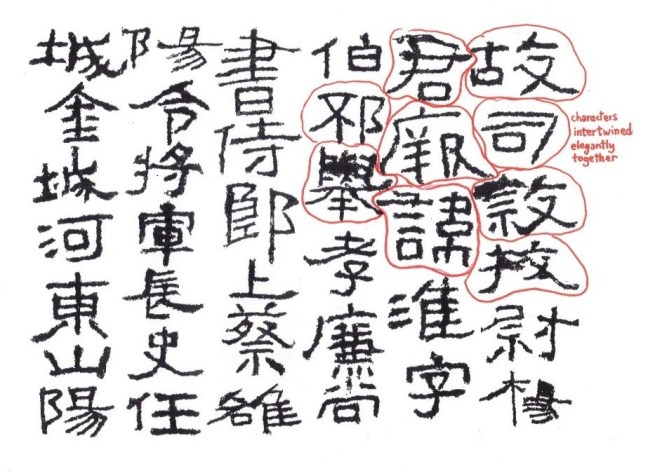 故司隸挍尉楊
君厥諱淮字
伯邳舉孝廉尚
書侍郎上蔡雒
陽令將軍長史任
城金城河東山陽
characters
intertwined
elegantly
together